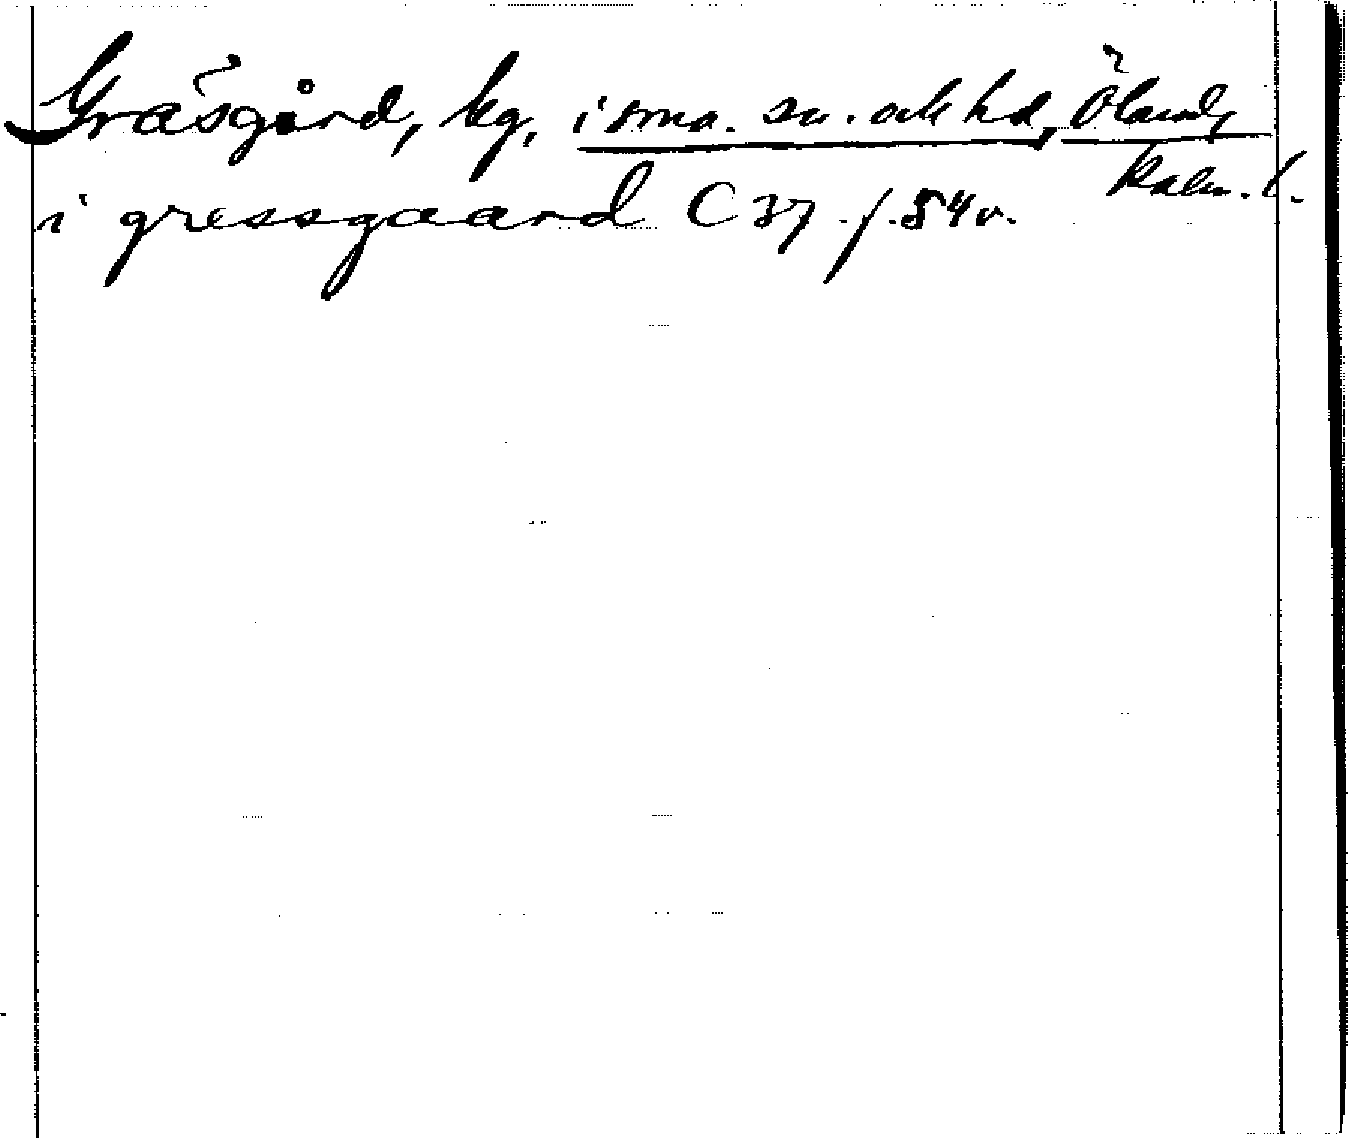 Gräsgård, kg, i sma. sn. och hd, Öland,
Kalm. l.
i gressgaard C 37 f. 54 v.